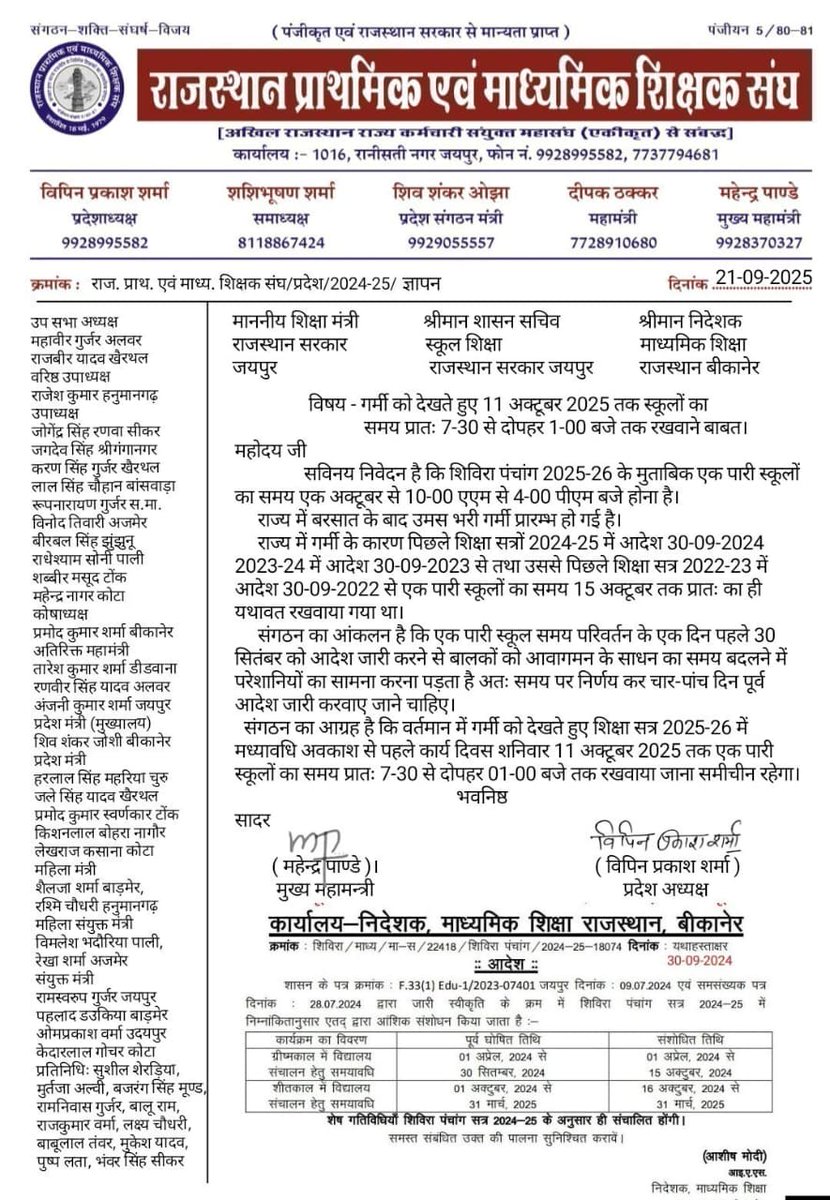 संगठन–शक्ति–संघर्ष–विजय
( पंजीकृत एवं राजस्थान सरकार से मान्यता प्राप्त )
पंजीयन 5/80–81
राजस्थान प्राथमिक एवं माध्यमिक शिक्षक संघ
[अखिल राजस्थान राज्य कर्मचारी संयुक्त महासंघ (एकीकृत) से संबद्ध]
कार्यालय :- 1016, रानीसती नगर जयपुर, फोन नं. 9928995582, 7737794681
विपिन प्रकाश शर्मा
प्रदेशाध्यक्ष
9928995582
शशिभूषण शर्मा
सभाध्यक्ष
8118867424
शिव शंकर ओझा
प्रदेश संगठन मंत्री
9929055557
दीपक ठक्कर
महामंत्री
7728910680
महेन्द्र पाण्डे
मुख्य महामंत्री
9928370327
क्रमांक : राज. प्राथ. एवं माध्य. शिक्षक संघ/प्रदेश/2024-25/ ज्ञापन
दिनांक 21-09-2025
उप सभा अध्यक्ष
महावीर गुर्जर अलवर
राजबीर यादव खैरथल
वरिष्ठ उपाध्यक्ष
राजेश कुमार हनुमानगढ़
उपाध्यक्ष
जोगेंद्र सिंह रणवा सीकर
जगदेव सिंह श्रीगंगानगर
करण सिंह गुर्जर खैरथल
लाल सिंह चौहान बांसवाड़ा
रूपनारायण गुर्जर स.मा.
विनोद तिवारी अजमेर
बीरबल सिंह झुंझुनू
राधेश्याम सोनी पाली
शब्बीर मसूद टोंक
महेन्द्र नागर कोटा
कोषाध्यक्ष
प्रमोद कुमार शर्मा बीकानेर
अतिरिक्त महामंत्री
तारेश कुमार शर्मा डीडवाना
रणवीर सिंह यादव अलवर
अंजनी कुमार शर्मा जयपुर
प्रदेश मंत्री (मुख्यालय)
शिव शंकर जोशी बीकानेर
प्रदेश मंत्री
हरलाल सिंह महरिया चुरु
जले सिंह यादव खैरथल
प्रमोद कुमार स्वर्णकार टोंक
किशनलाल बोहरा नागौर
लेखराज कसाना कोटा
महिला मंत्री
शैलजा शर्मा बाड़मेर,
रश्मि चौधरी हनुमानगढ़
महिला संयुक्त मंत्री
विमलेश भदौरिया पाली,
रेखा शर्मा अजमेर
संयुक्त मंत्री
रामस्वरुप गुर्जर जयपुर
पहलाद डउकिया बाड़मेर
ओमप्रकाश वर्मा उदयपुर
केदारलाल गोचर कोटा
प्रतिनिधिः सुशील शेरड़िया,
मुर्तजा अल्वी, बजरंग सिंह मूण्ड,
रामनिवास गुर्जर, बालू राम,
राजकुमार वर्मा, लक्ष्य चौधरी,
बाबूलाल तंवर, मुकेश यादव,
पुष्प लता, भंवर सिंह सीकर
माननीय शिक्षा मंत्री
राजस्थान सरकार
जयपुर
श्रीमान शासन सचिव
स्कूल शिक्षा
राजस्थान सरकार जयपुर
श्रीमान निदेशक
माध्यमिक शिक्षा
राजस्थान बीकानेर
विषय - गर्मी को देखते हुए 11 अक्टूबर 2025 तक स्कूलों का
समय प्रातः 7-30 से दोपहर 1-00 बजे तक रखवाने बाबत।
महोदय जी
सविनय निवेदन है कि शिविरा पंचांग 2025-26 के मुताबिक एक पारी स्कूलों
का समय एक अक्टूबर से 10-00 एएम से 4-00 पीएम बजे होना है।
राज्य में बरसात के बाद उमस भरी गर्मी प्रारम्भ हो गई है।
राज्य में गर्मी के कारण पिछले शिक्षा सत्रों 2024-25 में आदेश 30-09-2024
2023-24 में आदेश 30-09-2023 से तथा उससे पिछले शिक्षा सत्र 2022-23 में
आदेश 30-09-2022 से एक पारी स्कूलों का समय 15 अक्टूबर तक प्रातः का ही
यथावत रखवाया गया था।
संगठन का आंकलन है कि एक पारी स्कूल समय परिवर्तन के एक दिन पहले 30
सितंबर को आदेश जारी करने से बालकों को आवागमन के साधन का समय बदलने में
परेशानियों का सामना करना पड़ता है अतः समय पर निर्णय कर चार-पांच दिन पूर्व
आदेश जारी करवाए जाने चाहिए।
संगठन का आग्रह है कि वर्तमान में गर्मी को देखते हुए शिक्षा सत्र 2025-26 में
मध्यावधि अवकाश से पहले कार्य दिवस शनिवार 11 अक्टूबर 2025 तक एक पारी
स्कूलों का समय प्रातः 7-30 से दोपहर 01-00 बजे तक रखवाया जाना समीचीन रहेगा।
भवनिष्ठ
सादर
( महेन्द्र पाण्डे )।
मुख्य महामन्त्री
विपिन प्रकाश शर्मा
( विपिन प्रकाश शर्मा )
प्रदेश अध्यक्ष
कार्यालय–निदेशक, माध्यमिक शिक्षा राजस्थान, बीकानेर
क्रमांक : शिविरा/माध्य/मा–स/22418/शिविरा पंचांग/2024–25–18074 दिनांक : यथाहस्ताक्षर
30-09-2024
:: आदेश ::
शासन के पत्र क्रमांक : F.33(1) Edu-1/2023-07401 जयपुर दिनांक : 09.07.2024 एवं समसंख्यक पत्र
दिनांक : 28.07.2024 द्वारा जारी स्वीकृति के क्रम में शिविरा पंचांग सत्र 2024–25 में
निम्नांकितानुसार एतद् द्वारा आंशिक संशोधन किया जाता है :–
कार्यक्रम का विवरण पूर्व घोषित तिथि संशोधित तिथि
ग्रीष्मकाल में विद्यालय 01 अप्रेल, 2024 से 01 अप्रेल, 2024 से
संचालन हेतु समयावधि 30 सितम्बर, 2024 15 अक्टूबर, 2024
शीतकाल में विद्यालय 01 अक्टुबर, 2024 से 16 अक्टूबर, 2024 से
संचालन हेतु समयावधि 31 मार्च, 2025 31 मार्च, 2025
शेष गतिविधियाँ शिविरा पंचांग सत्र 2024–25 के अनुसार ही संचालित होंगी।
समस्त संबंधित उक्त की पालना सुनिश्चित करावें।
(आशीष मोदी)
आइ.ए.एस.
निदेशक, माध्यमिक शिक्षा